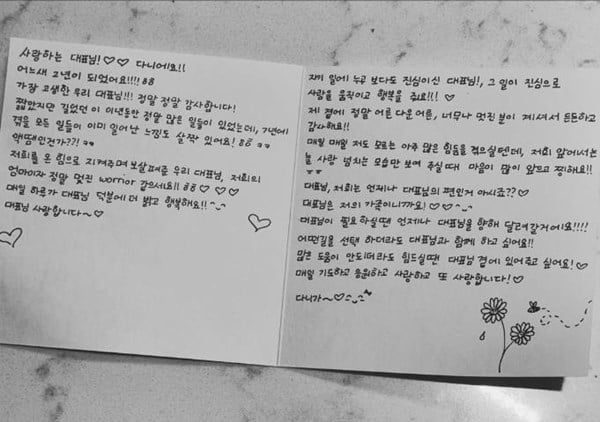 사랑하는 대표님!♡♡ 다니에요!!
어느새 2년이 되었어요!!!!ㅎㅎ
가장 고생한 우리 대표님!!! 정말 정말 감사합니다!
짧았지만 길었던 이 이년동안 정말 많은 일들이 있었는데, 7년에
겪을 모든 일들이 이미 일어난 느낌도 살짝 있어요! ㅎㅎ ㅠㅠ
액땜인건가??! ㅠㅠ
저희를 온 힘으로 지켜주며 보살펴준 우리 대표님, 저희의
엄마이자 정말 멋진 worrior 같으세요!! ㅎㅎ♡♡♡
매일 하루가 대표님 덕분에 더 밝고 행복해요!! ^_^
대표님 사랑합니다~♡
자기 일에 누구 보다도 진심이신 대표님!, 그 일이 진심으로
사람을 움직이고 행복을 줘요!!!♡
제 곁에 정말 어른 다운 어른, 너무나 멋진 분이 계셔서 든든하고
감사해요!!
매일 매일 저도 모르는 아주 많은 힘듬을 겪으실텐데, 저희 앞에서는
늘 사랑 넘치는 모습만 보여 주실때 마음이 많이 앞으고 찡해요!!
ㅠㅠ
대표님, 저희는 언제나 대표님의 편인거 아시죠??♡
대표님은 저의 가족이니까요!♡♡^_^
대표님이 필요하실땐 언제나 대표님을 향해 달려갈거에요!!!!
어떤길을 선택 하더라도 대표님과 함께 하고 싶어요!!
많은 도움이 안되더라도 힘드실때 대표님 곁에 있어주고 싶어요!♡
매일 기도하고 응원하고 사랑하고 또 사랑합니다!♡
다니가~♡^_^